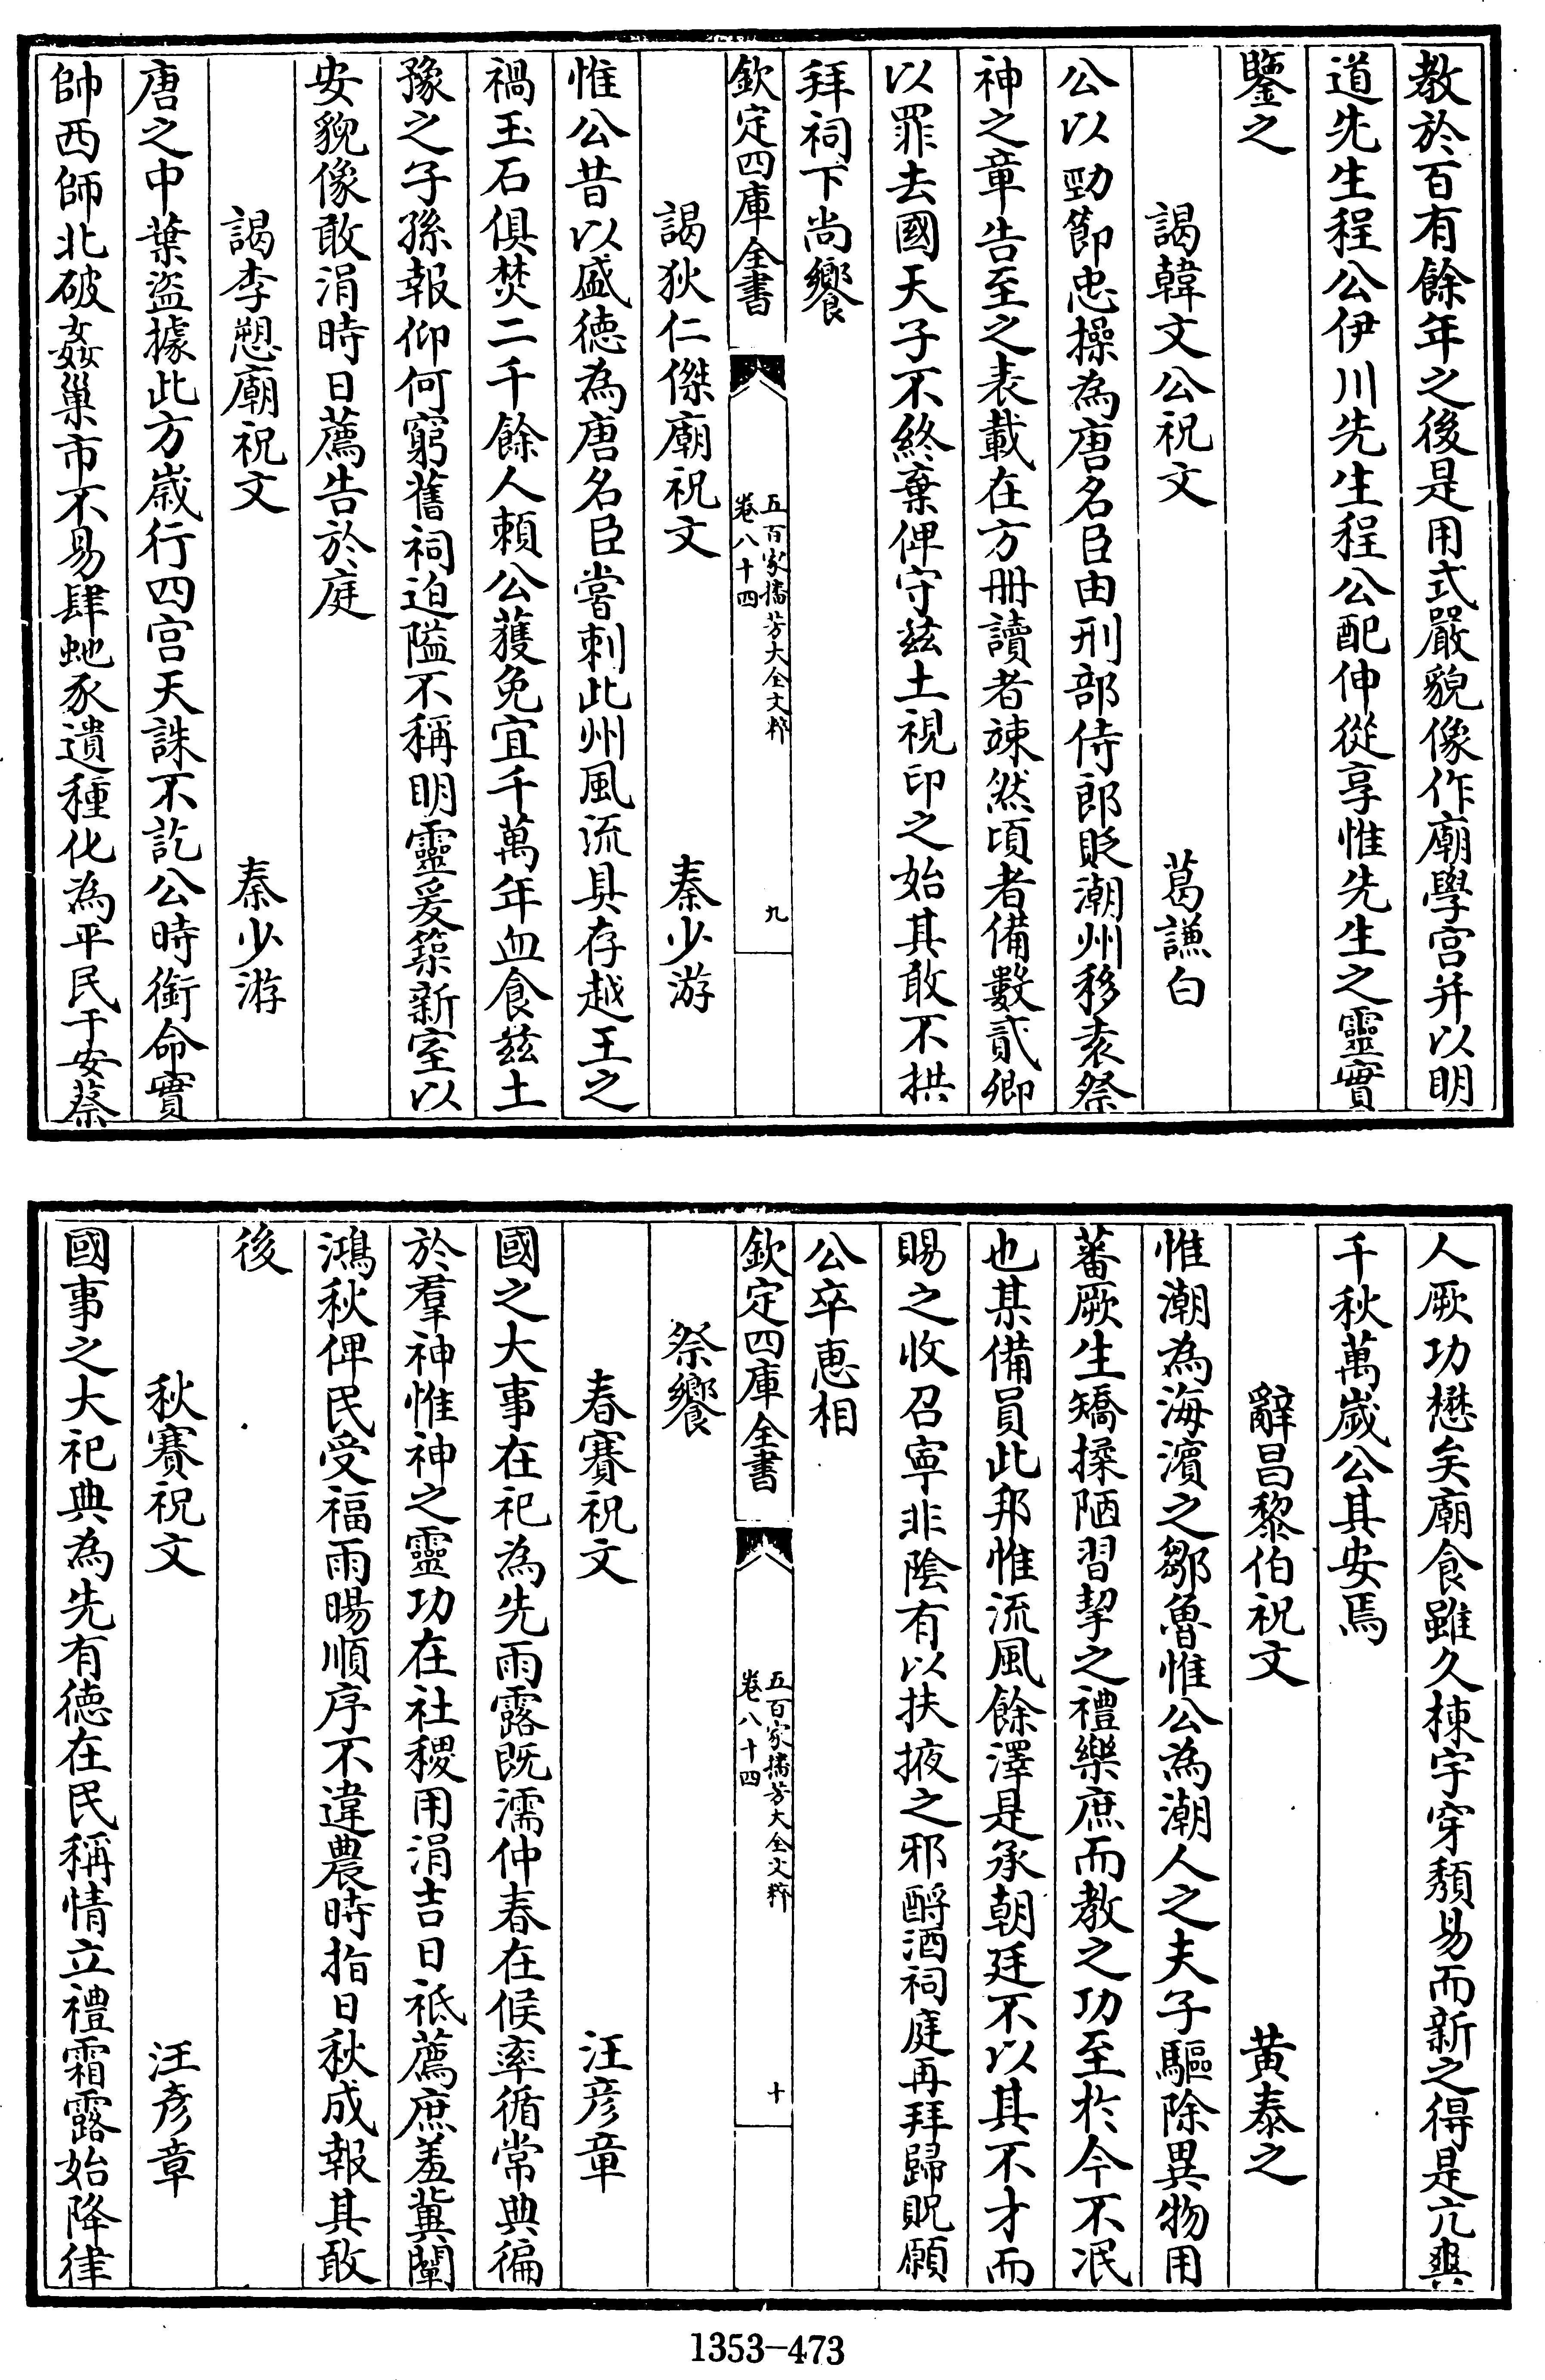 教於百有餘年之後是用式嚴貌像作廟學宮并以明
道先生程公伊川先生程公配伸從享惟先生之靈實
鑒之
謁韓文公祝文　葛謙白
公以勁節忠操為唐名臣由刑部侍郎貶潮州移袁祭
神之章告至之表載在方冊讀者竦然頃者備數貳卿
以罪去國天子不終棄俾守兹土視印之始其敢不拱
拜祠下尚饗
欽定四庫全書
五百家播芳大全文粹
卷八十四
九
謁狄仁傑廟祝文　秦少游
惟公昔以盛德為唐名臣嘗刺此州風流具存越王之
禍玉石俱焚二千餘人頼公獲免宜千萬年血食兹土
豫之子孫報仰何窮舊祠迫隘不稱明靈爰築新室以
安貌像敢涓時日薦告於庭
謁李愬廟祝文　秦少游
唐之中葉盜據此方嵗行四宫天誅不訖公時銜命實
帥西師北破姦巢市不易肆虵豕遺種化為平民于安蔡
人厥功懋矣廟食雖久棟宇穿頽易而新之得是亢爽
千秋萬嵗公其安焉
辭昌黎伯祝文　黄泰之
惟潮為海濵之鄒魯惟公為潮人之夫子驅除異物用
蕃厥生矯揉陋習挈之禮樂庶而教之功至於今不泯
也某備員此邦惟流風餘澤是承朝廷不以其不才而
賜之收召寧非陰有以扶掖之邪酹酒祠庭再拜歸貺願
公卒惠相
欽定四庫全書
五百家播芳大全文粹
卷八十四
十
祭饗
春賽祝文　汪彦章
國之大事在祀為先雨露既濡仲春在候率循常典徧
於羣神惟神之靈功在社稷用涓吉日祗薦庶羞冀闡
鴻秋俾民受福雨暘順序不違農時指日秋成報其敢
後
秋賽祝文　汪彦章
國事之大祀典為先有德在民稱情立禮霜露始降律
1353-473